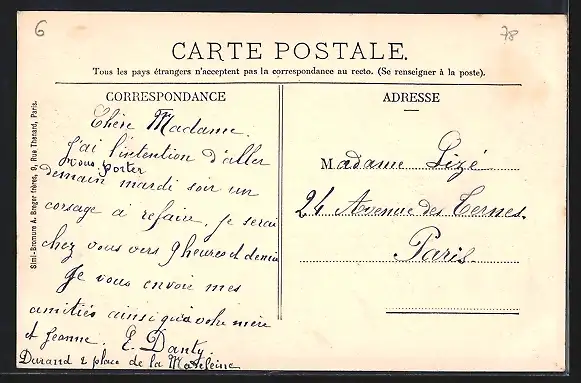 6
78
CARTE POSTALE.
Tous les pays étrangers n'acceptent pas la correspondance au recto. (Se renseigner à la poste).
CORRESPONDANCE
Chère Madame.
J'ai l'intention d'aller
vous porter
demain mardi soir un
corsage à refaire, je serai
chez vous vers 9 heures et demie
Je vous envoie mes
amitiés ainsi qu'à votre mère
et Jeanne. E. Danty.
Durand 2 place de la Madeleine
ADRESSE
Madame Lizé
24 Avenue des Ternes.
Paris
Simi-Bromure A. Breger frères, 9, Rue Thenard, Paris.